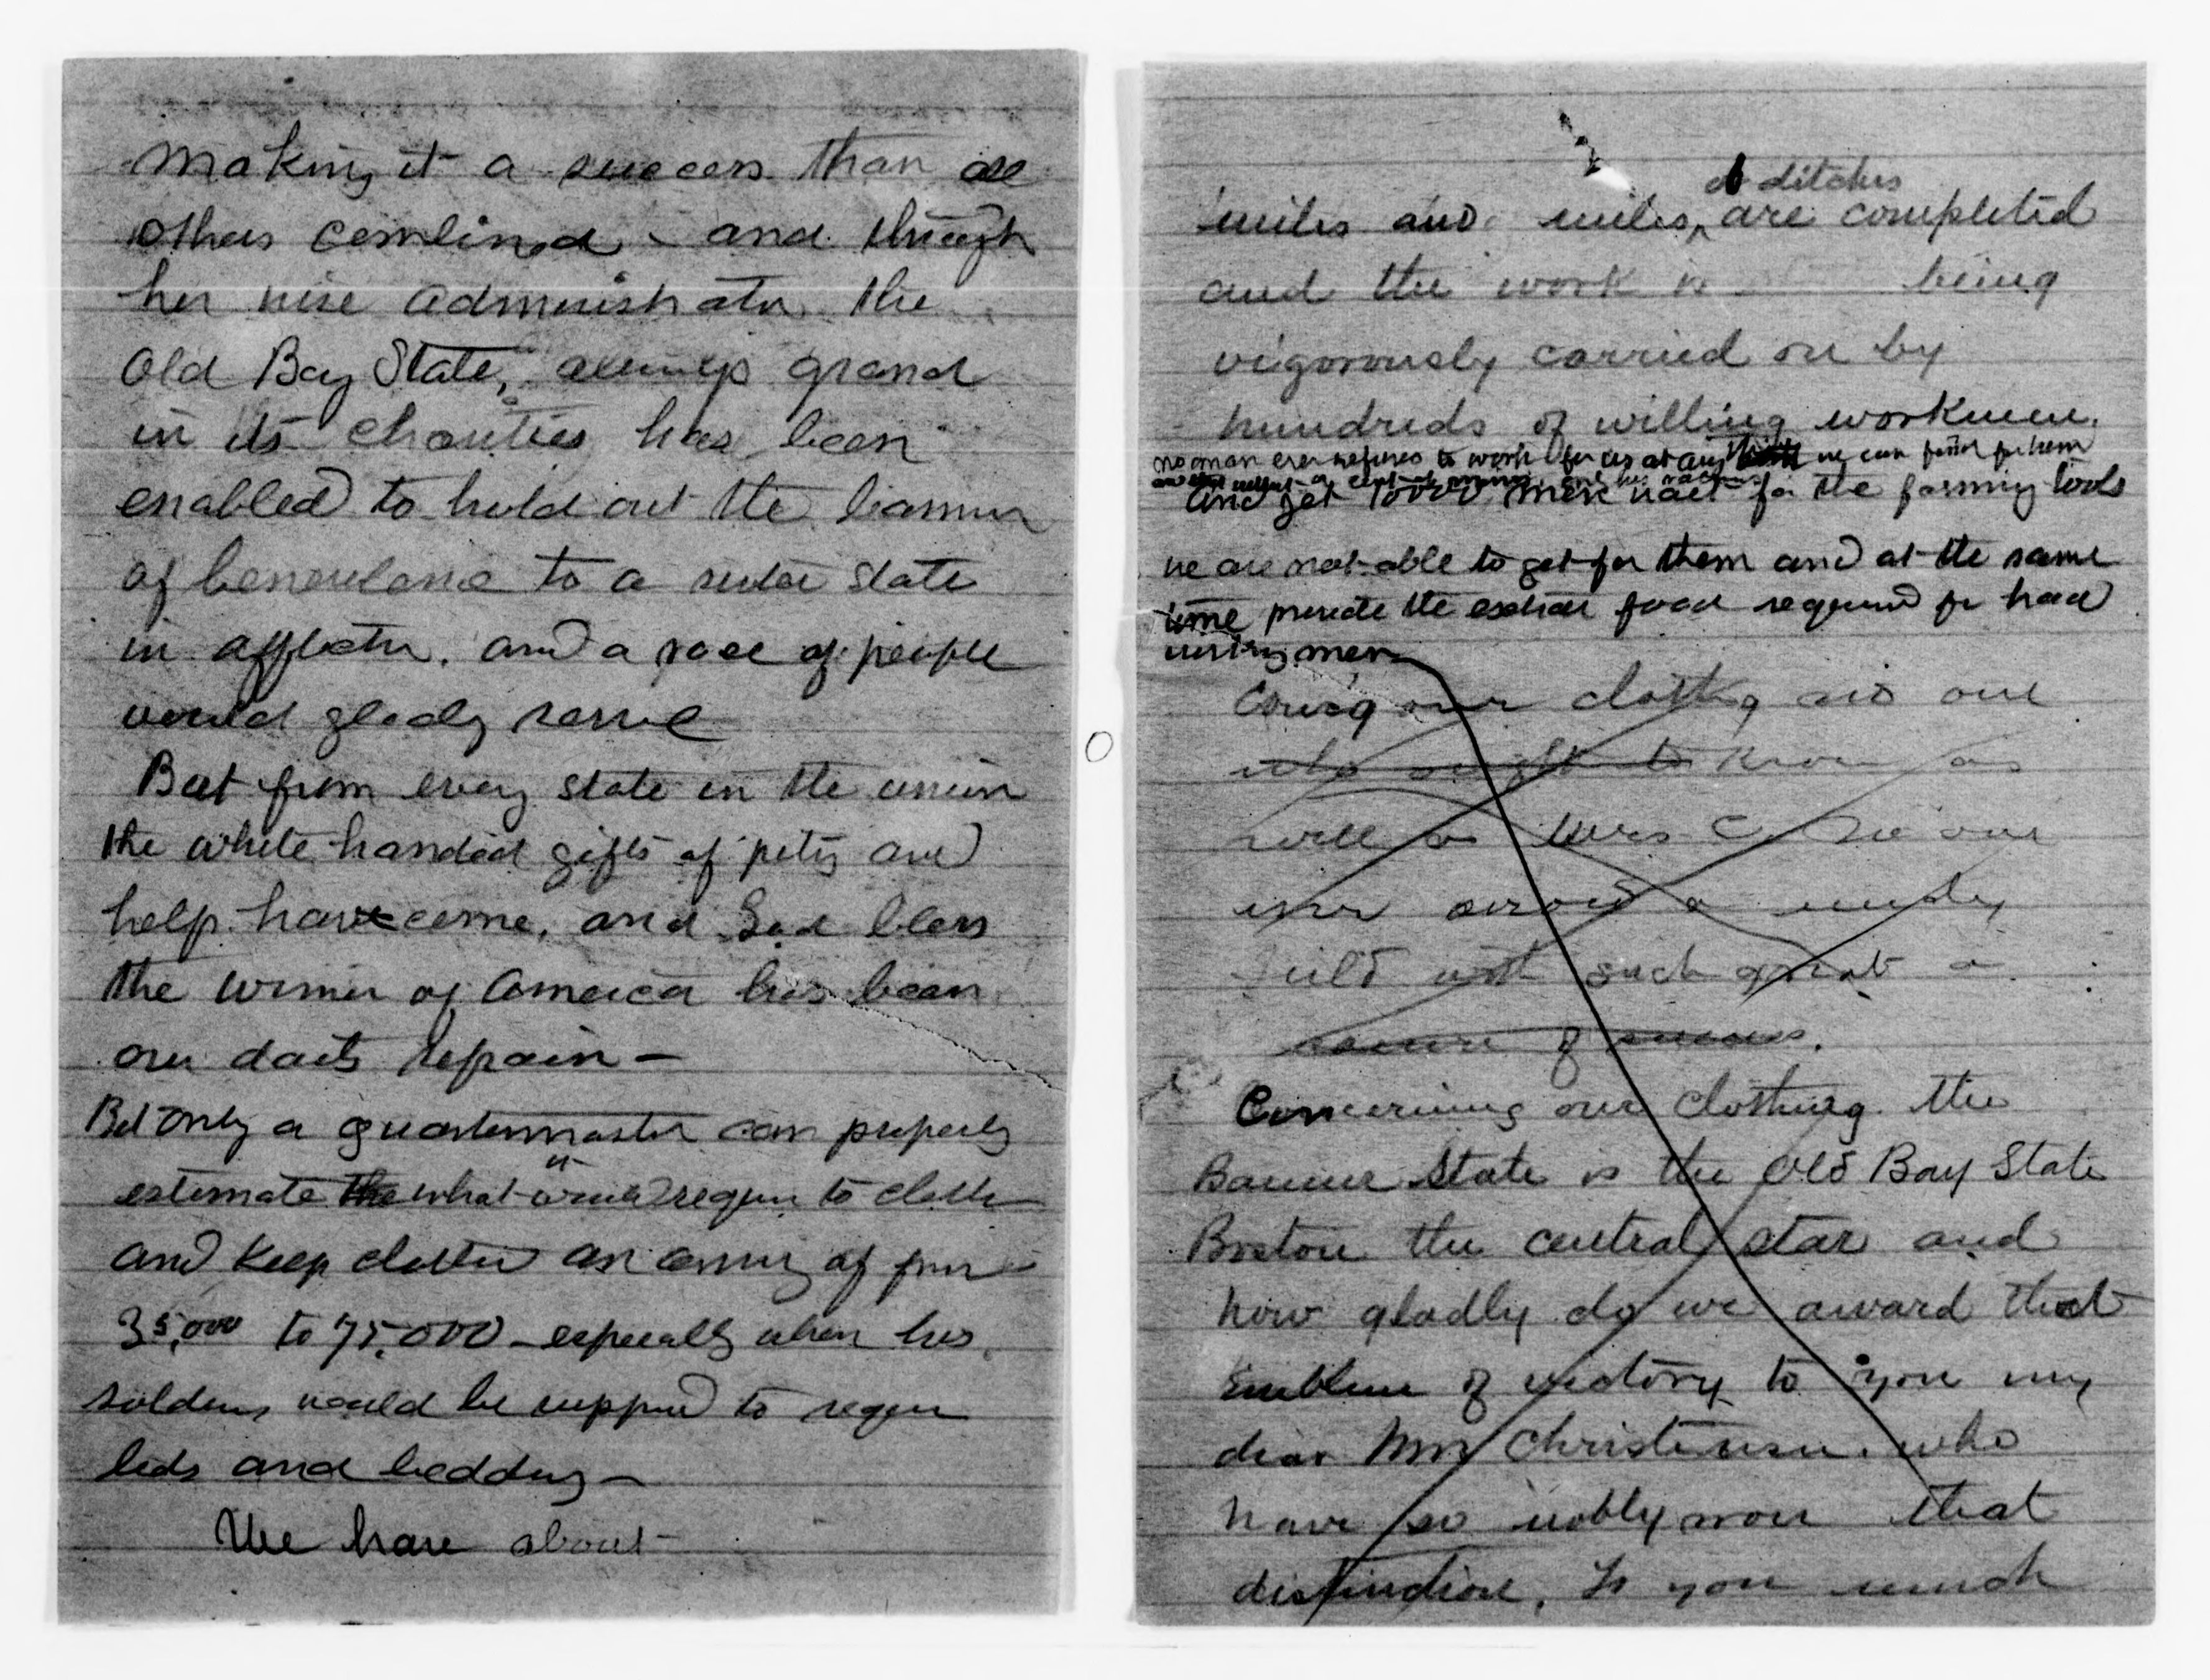 making it a success than all
others combined - and through
her wise administratn the
Old Bay State, always grand
in its charities has been
enabled to hold out the banner
of benevolence to a sister state
in afflictn. and a race of people
would gladly
But from every state in the union
the white handed gifts of pity and
help have come, and God bless
the women of America has been
our daily refrain -
But only a quartermaster can properly
estimate the what it would requir to clothe
and keep clothed an army of from
35,000 to 75,000 - especially when his
soldiers would be supposed to requir
beds and bedding -
We have about
of ditches
miles and miles, are completed
and the work is being
vigorously carried on by
hundreds of willing workmen.
no man ever refuses to work for us at any we can find for him
and yet 10000 men wait for the farming tools
we are not able to get for them and at the same
time provide the extra food required for hard
working men
our clothing and one
who ought to know as
well as Mrs C. no one
ever a
field with such great a
of success.
Concerning our clothing. the
Banner State is the Old Bay State
Boston the central star and
how gladly do we award that
Emblem of victory to you my
dear Mrs Christensen. who
have so nobly won that
distinction. To you much